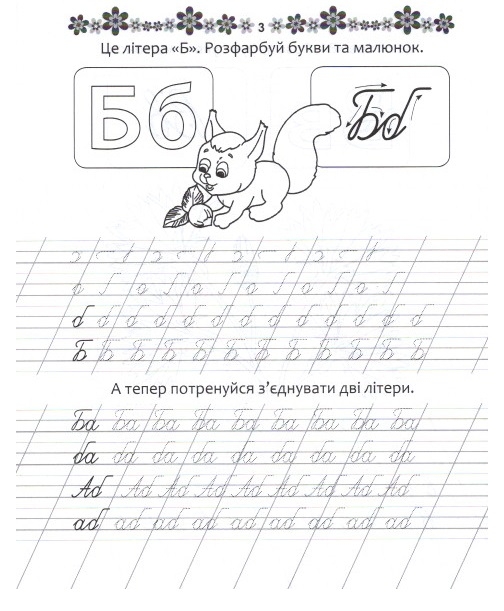 3
Це літера «Б». Розфарбуй букви та малюнок.
Бб Бб
б б б б б б б б б б б б
Б Б Б Б Б Б Б Б Б Б Б Б
А тепер потренуйся з’єднувати дві літери.
Ба Ба Ба Ба Ба Ба Ба Ба Ба
ба ба ба ба ба ба ба ба ба
Аб Аб Аб Аб Аб Аб Аб Аб Аб
аб аб аб аб аб аб аб аб аб